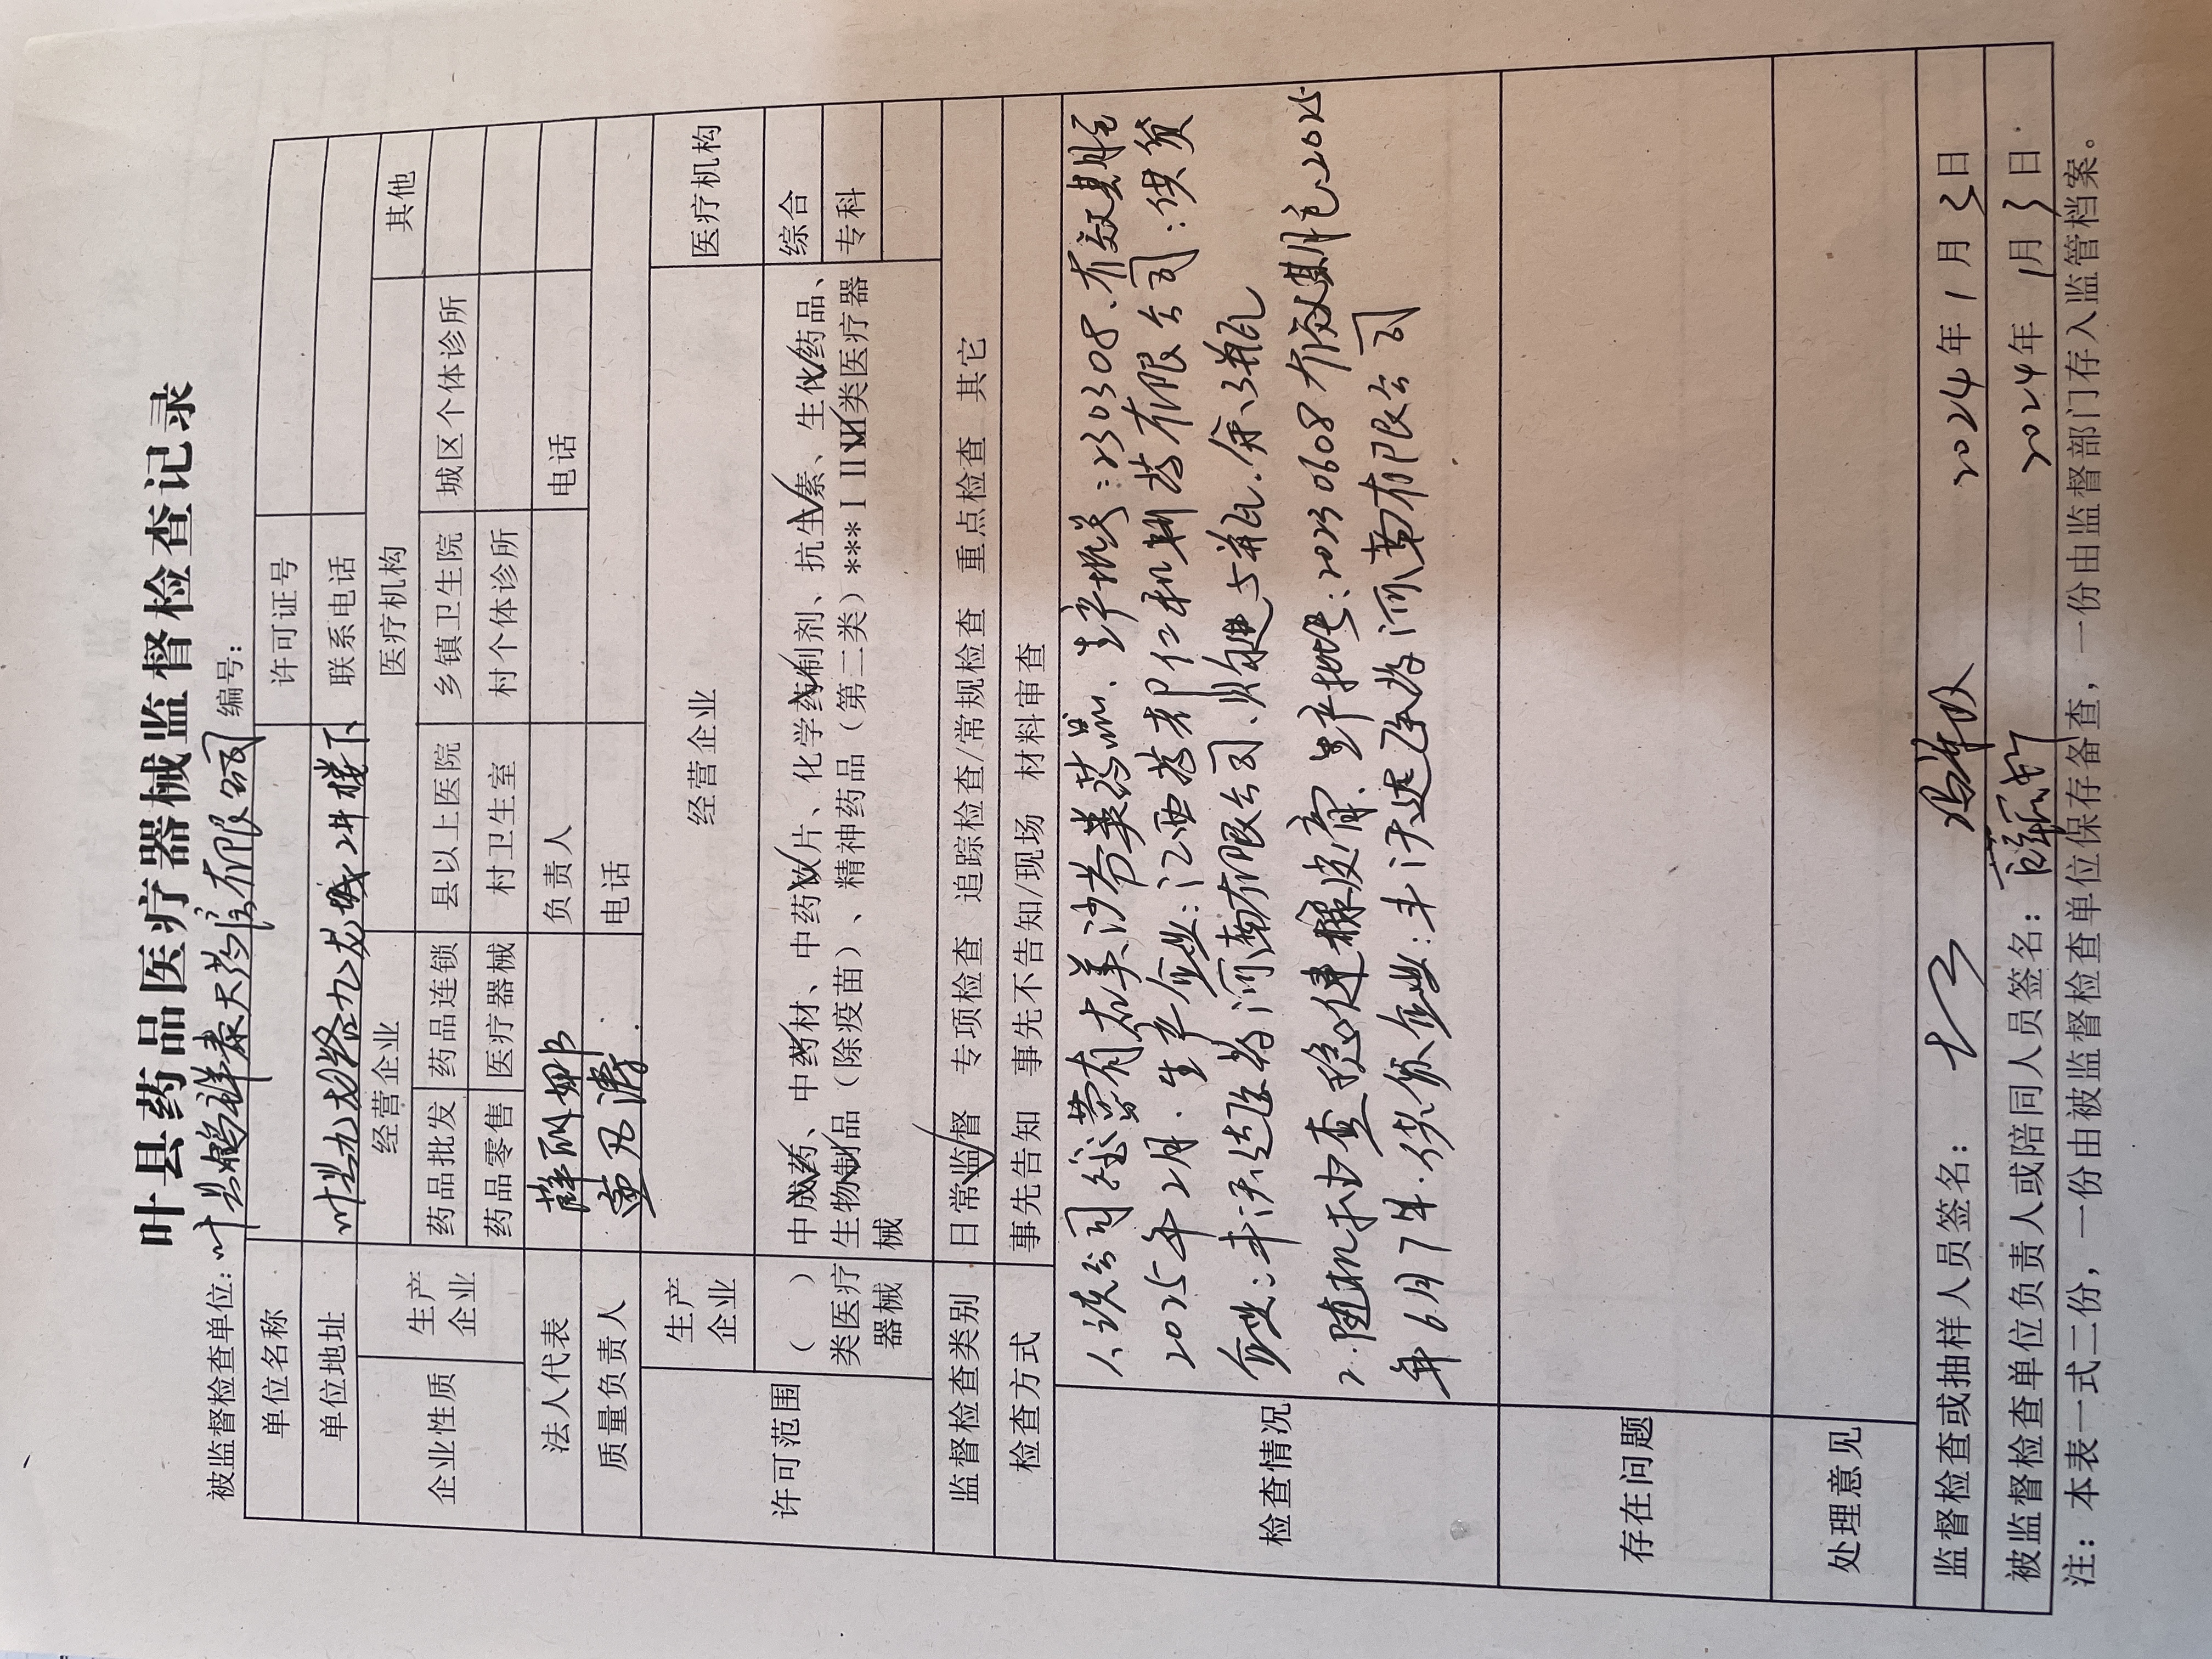 叶县药品医疗器械监督检查记录
被监督检查单位:叶县鹏祥泰大药房有限公司 编号:
单位名称 许可证号
单位地址 叶县九龙路九龙城2#楼下 联系电话
企业性质 生产企业 经营企业 医疗机构 其他
药品批发 药品连锁 县以上医院 乡镇卫生院 城区个体诊所
药品零售 医疗器械 村卫生室 村个体诊所
法人代表 薛丽娜 负责人 电话
质量负责人 电话
许可范围 生产企业 经营企业 医疗机构
( )类医疗器械 中成药、中药材、中药饮片、化学药制剂、抗生素、生化药品、 综合
生物制品(除疫苗)、精神药品(第二类)***I II III类医疗器 专科
械
监督检查类别 日常监督 专项检查 追踪检查/常规检查 重点检查 其它
检查方式 事先告知 事先不告知/现场 材料审查
检查情况 1、该公司经营有右美沙芬类药品、生产批号:230308、有效期至
2025年2月、生产企业:江西药都仁和制药有限公司:供货
企业:丰沃达医药河南有限公司、购进5瓶、余3瓶
2、随机抽查 皮膏、生产批号:20230608有效期至2025
年6月7日.供货企业:丰沃达医药河南有限公司
存在问题
处理意见
监督检查或抽样人员签名: 2024年1月3日
被监督检查单位负责人或陪同人员签名: 2024年1月3日
注:本表一式二份,一份由被监督检查单位保存备查,一份由监督部门存入监管档案。